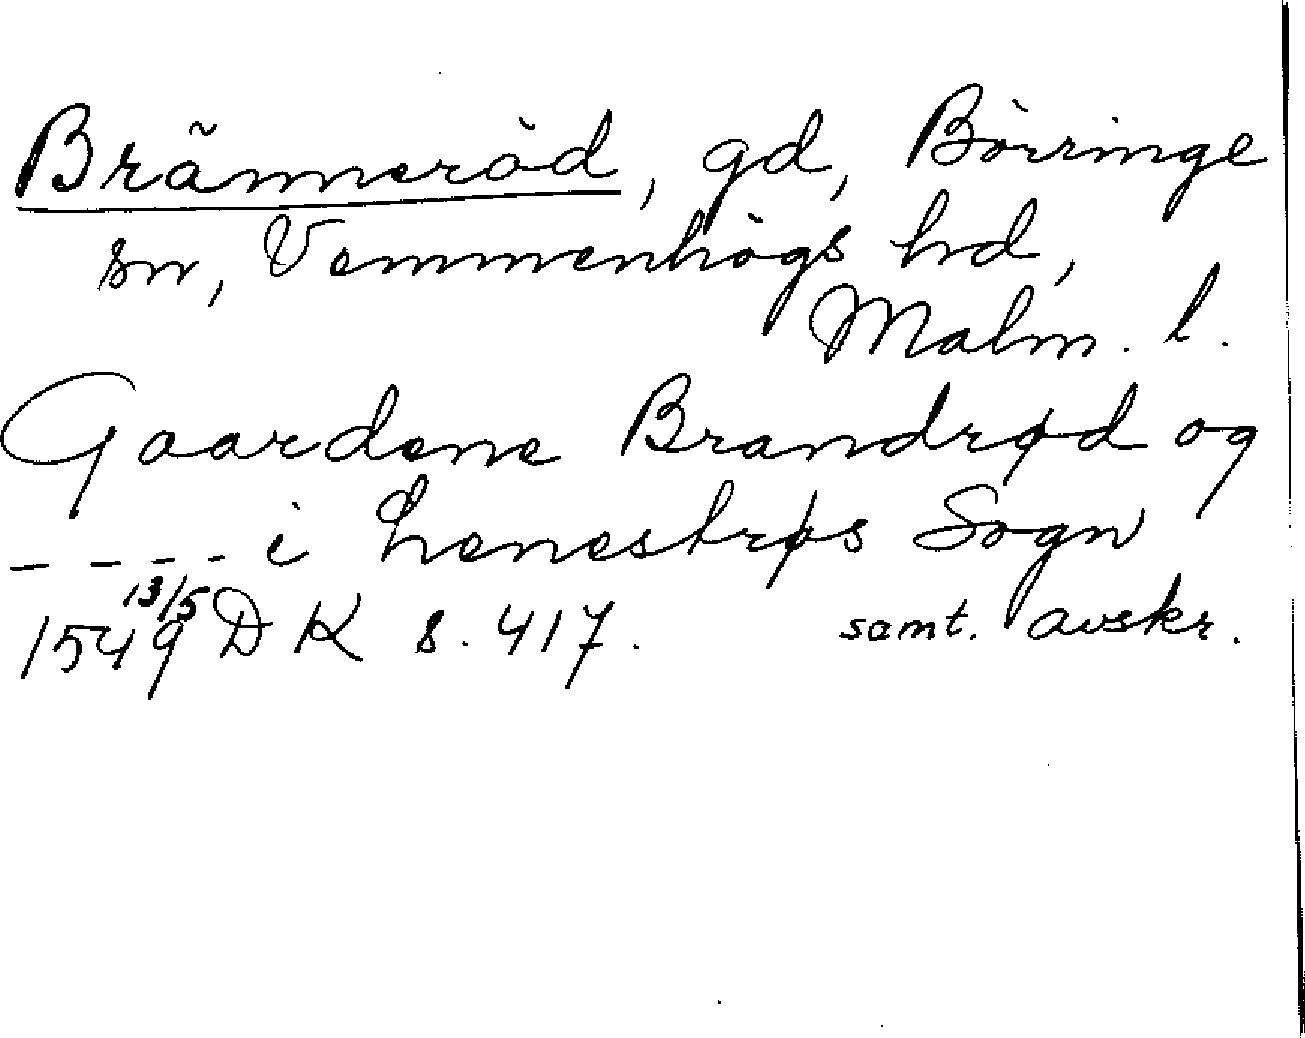 Bränneröd, gd, Börringe
sn, Vemmenhögs hd,
Malm. l.
Gaardene Brandrød og
- - - - i Lenestrøs Sogn
13/5
1549 DK s. 417. samt. avskr.